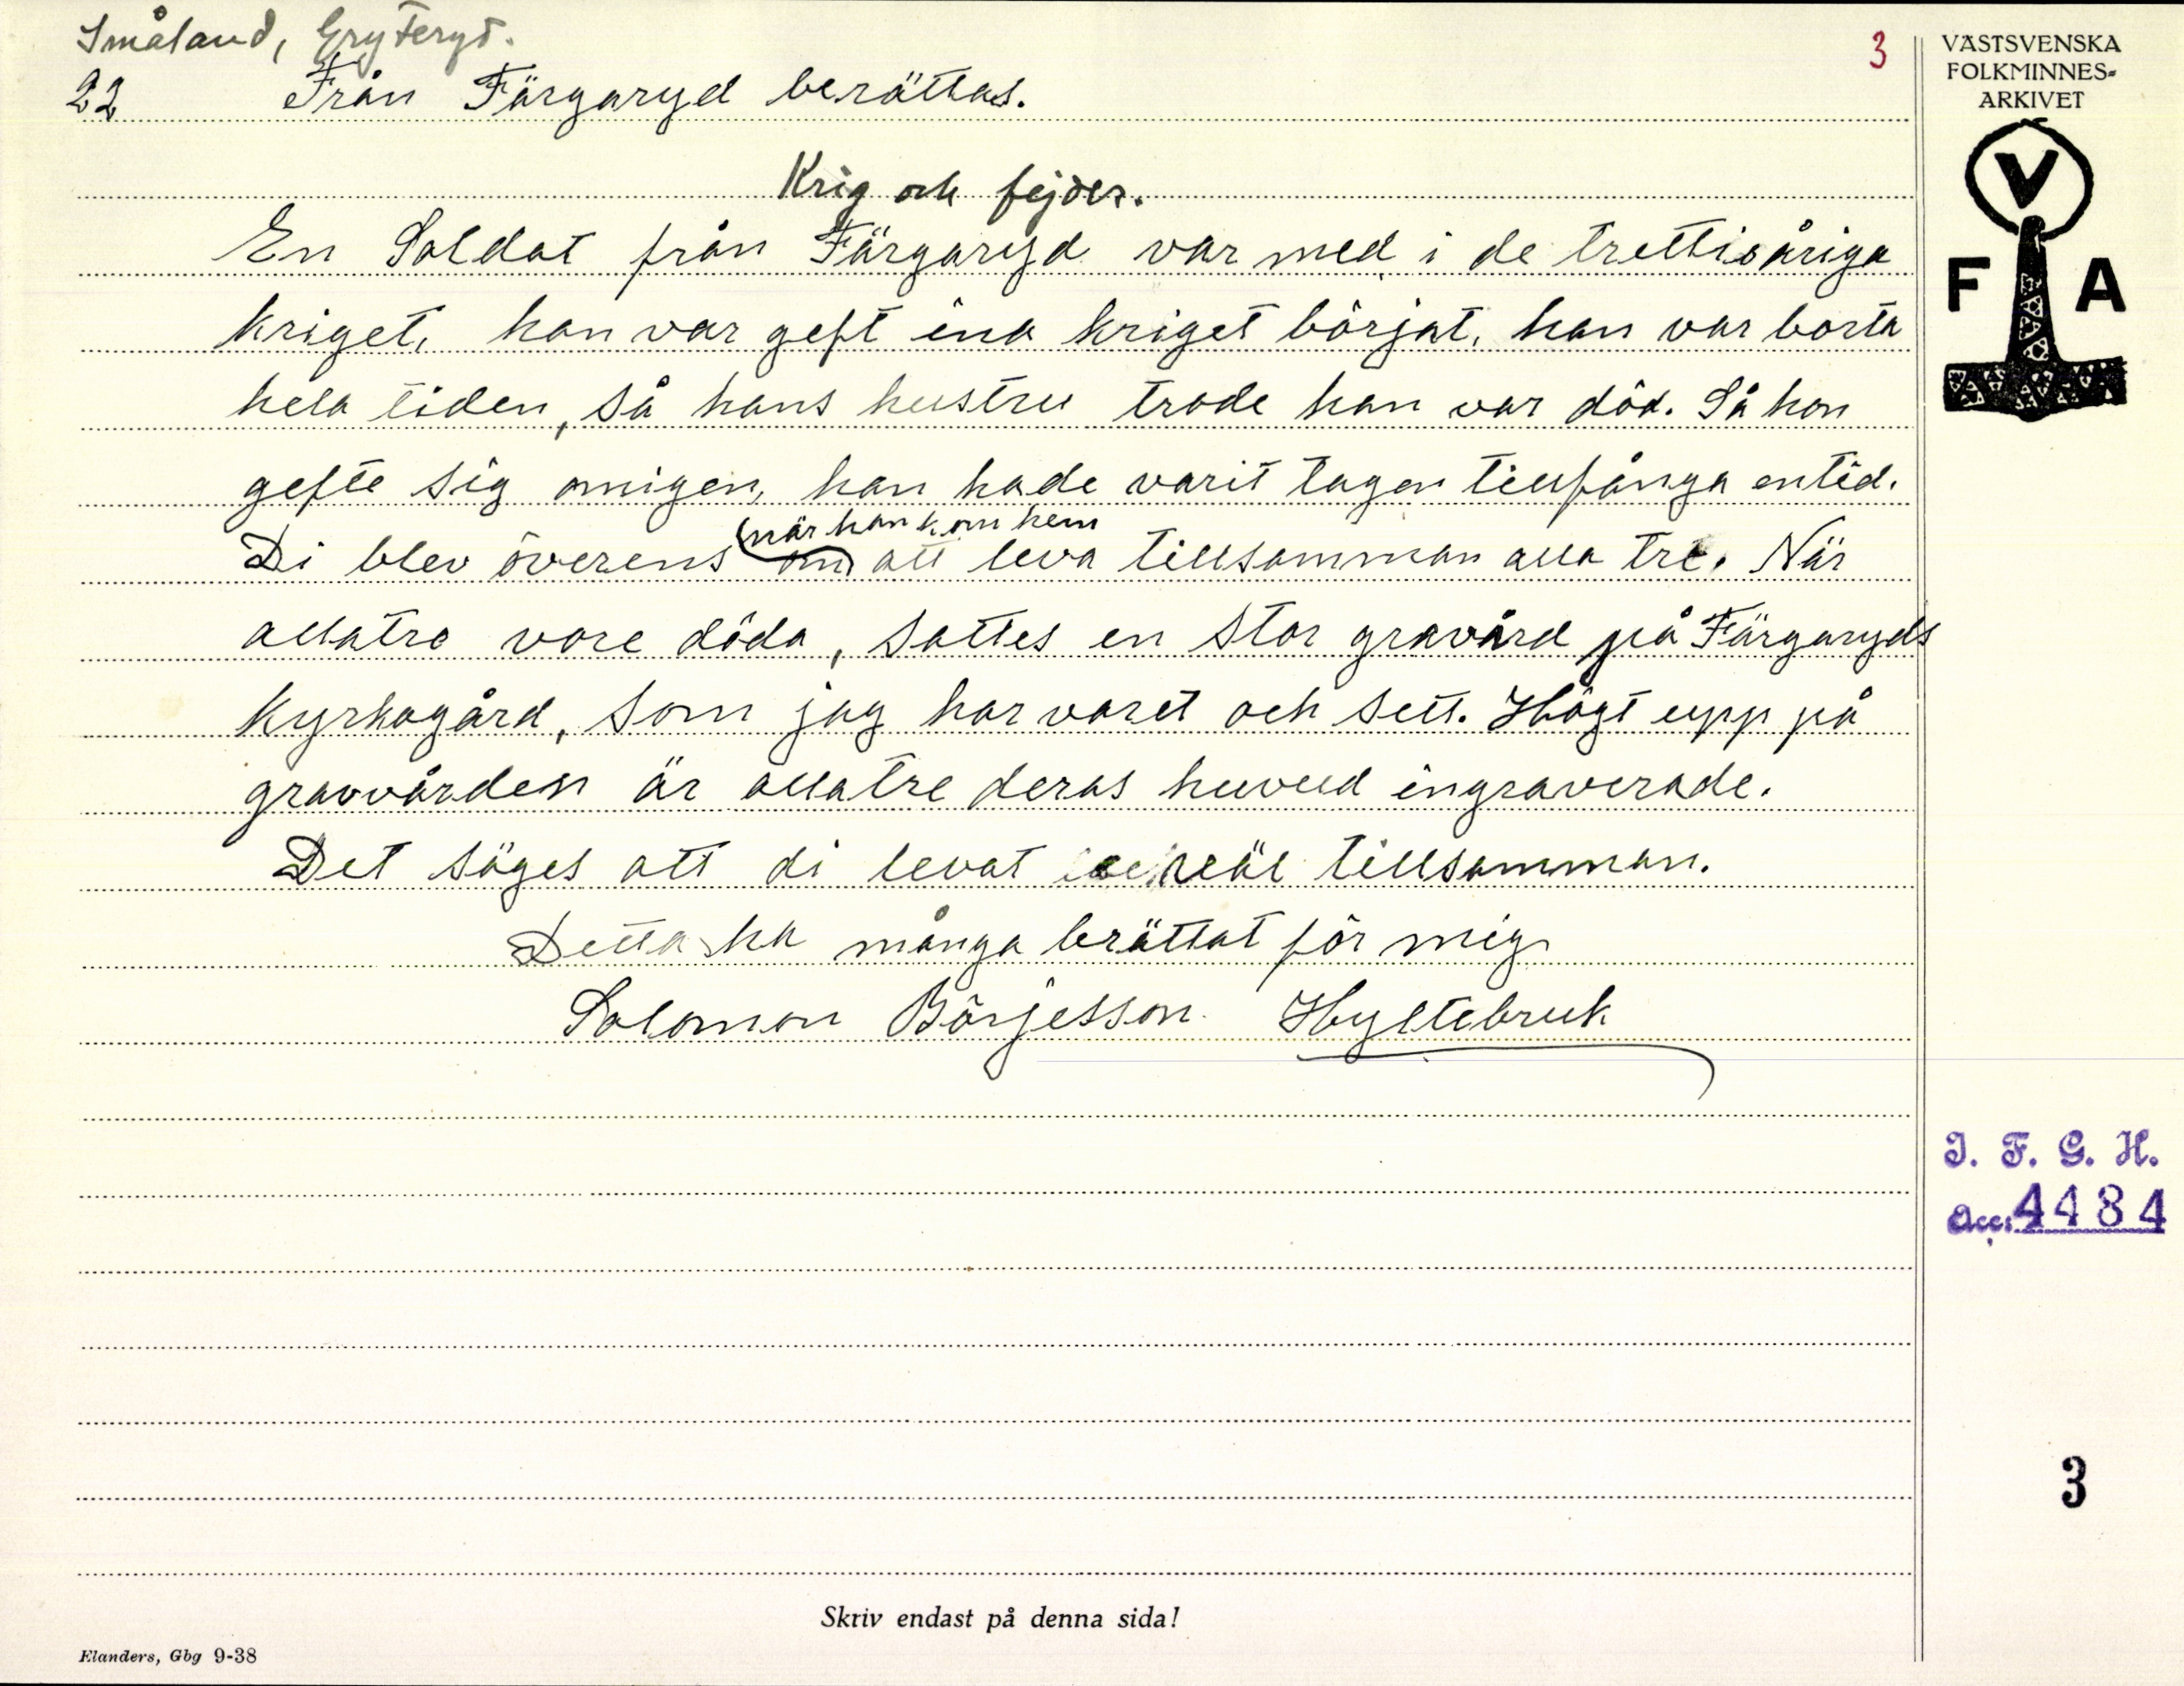 Småland, Gryteryd.
3
22 Från Färgaryd berättas.
Krig och fejder.
En Soldat från Färgaryd var med i de trettioåriga
kriget, han var geft ina kriget börjat, han var borta
hela tiden, så hans hustru trode han var död. Så hon
gefte sig omigen, han hade varit tagen tillfånga entid.
när han kom hem
Di blev överens om att leva tillsamman alla tre. När
allatre vore döda, sattes en stor gravård på Färgaryds
kyrkogård, som jag har varet och sett. Högt upp på
gravvården är allatre deras huvud ingraverade.
Det säges att di levat väl tillsamman.
Detta ha många berättat för mig.
Salomon Börjesson. Hyltebruk
VÄSTSVENSKA
FOLKMINNES-
ARKIVET
V
F A
I. F. G. H.
Acc. 4484
3
Skriv endast på denna sida!
Elanders, Gbg 9-38